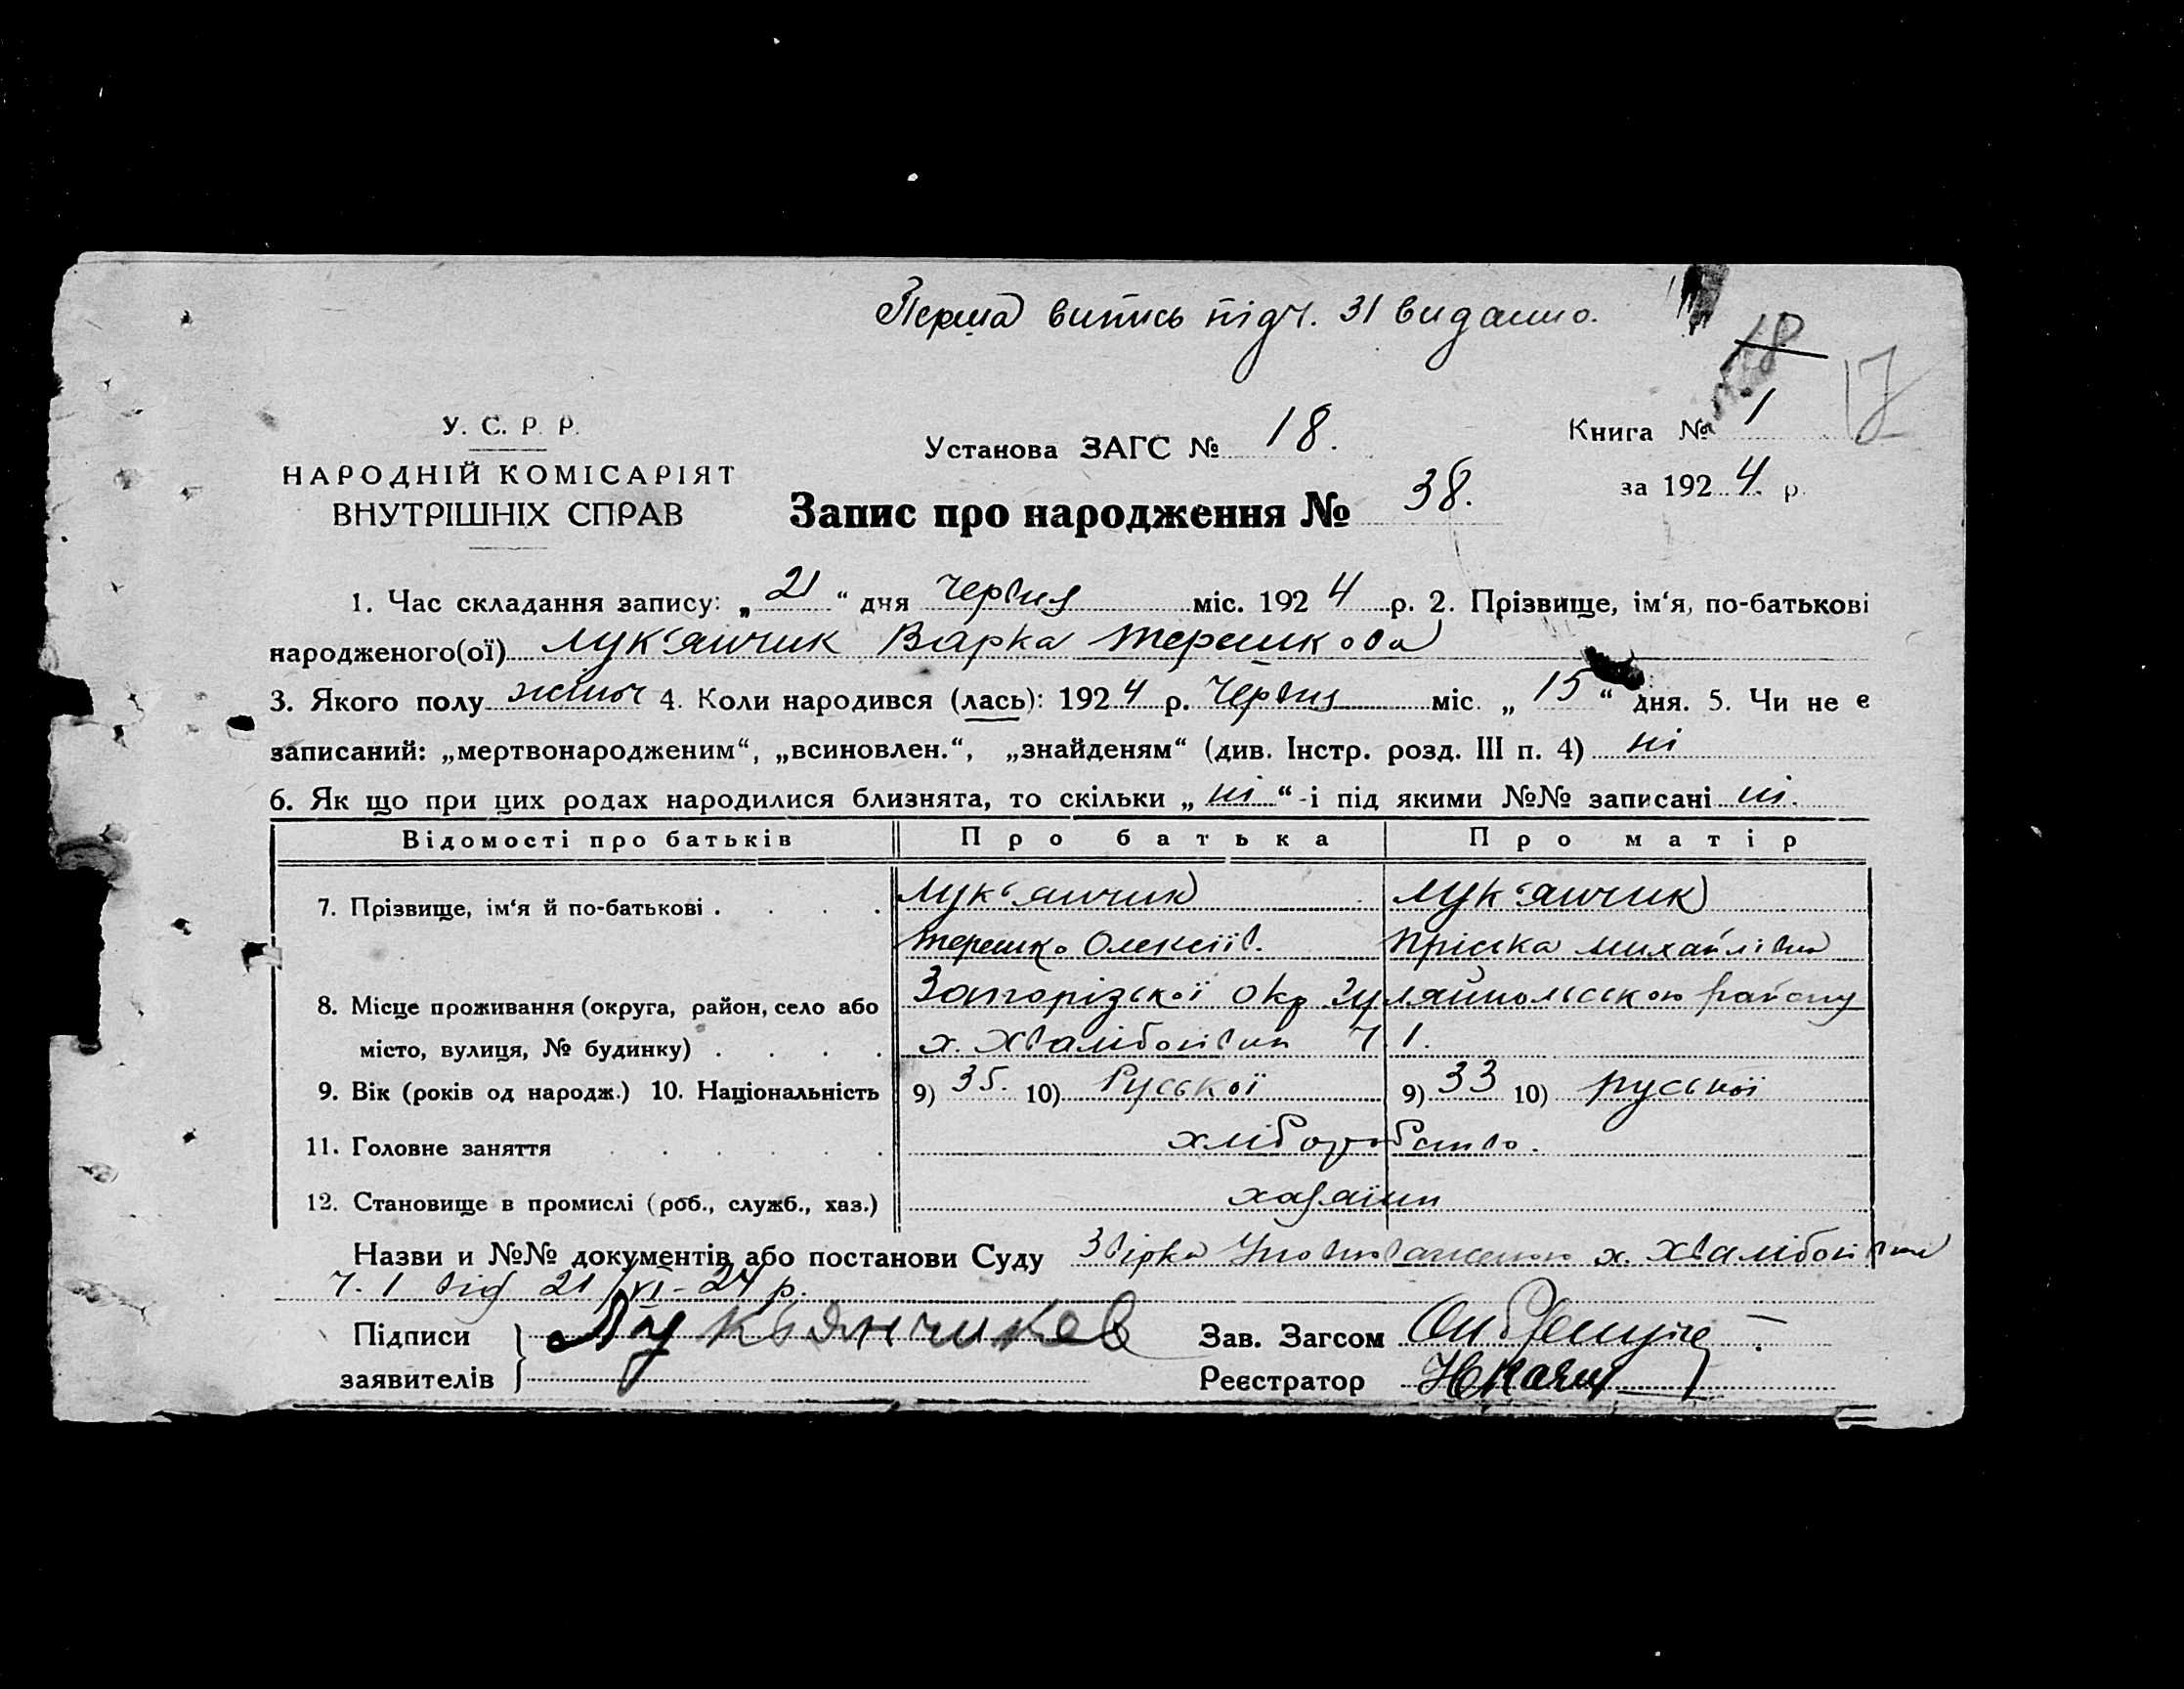 Перша випись під ч. 31 видано.
18
17
У. С. Р. Р.
Установа ЗАГС № 18.
Книга № 1
НАРОДНІЙ КОМІСАРІЯТ
за 1924. р.
ВНУТРІШНІХ СПРАВ
Запис про народження № 38.
1. Час складання запису: „21“ дня червня міс. 1924 р. 2. Прізвище, ім‘я, по-батькові
народженого(ої) Лук‘янчик Варка Терешкова
3. Якого полу жіноч 4. Коли народився (лась): 1924 р. червня міс. „15“ дня. 5. Чи не є
записаний: „мертвонародженим“, „всиновлен.“, „знайденям“ (див. Інстр. розд. III п. 4) ні
6. Як що при цих родах народилися близнята, то скільки „ні“-і під якими №№ записані ні.
Відомості про батьків Про батька Про матір
7. Прізвище, ім‘я й по-батькові . . . . Лук‘янчик Лук‘янчик
Терешко Олексіїв. Пріська Михайлівна
8. Місце проживання (округа, район, село або Запорізької окр Гуляйпольського району
місто, вулиця, № будинку) . . . . х. Хвалібогівка ч 1.
9. Вік (років од народж.) 10. Національність 9) 35. 10) Руської 9) 33 10) руської
11. Головне заняття . . . . . . хліборобство.
12. Становище в промислі (роб., служб., хаз.) хазяїни
Назви и №№ документів або постанови Суду х.
ч. 1 від 21/VI-24 р.
Підписи Лукьянчиков Зав. Загсом
заявителів Реєстратор